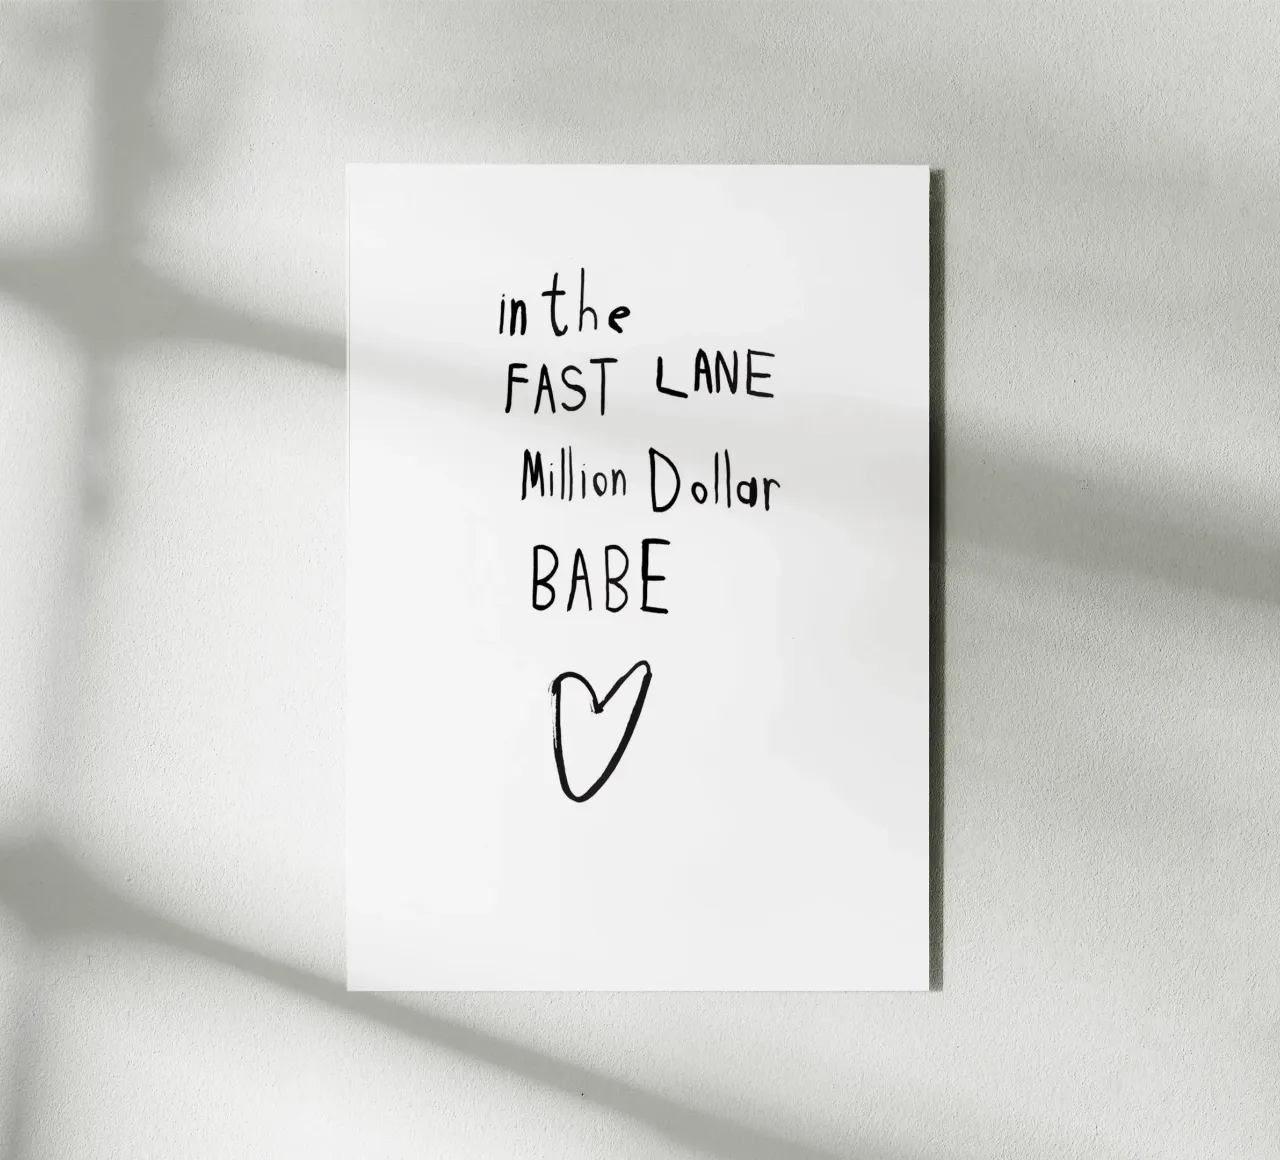 in the
FAST LANE
Million Dollar
BABE